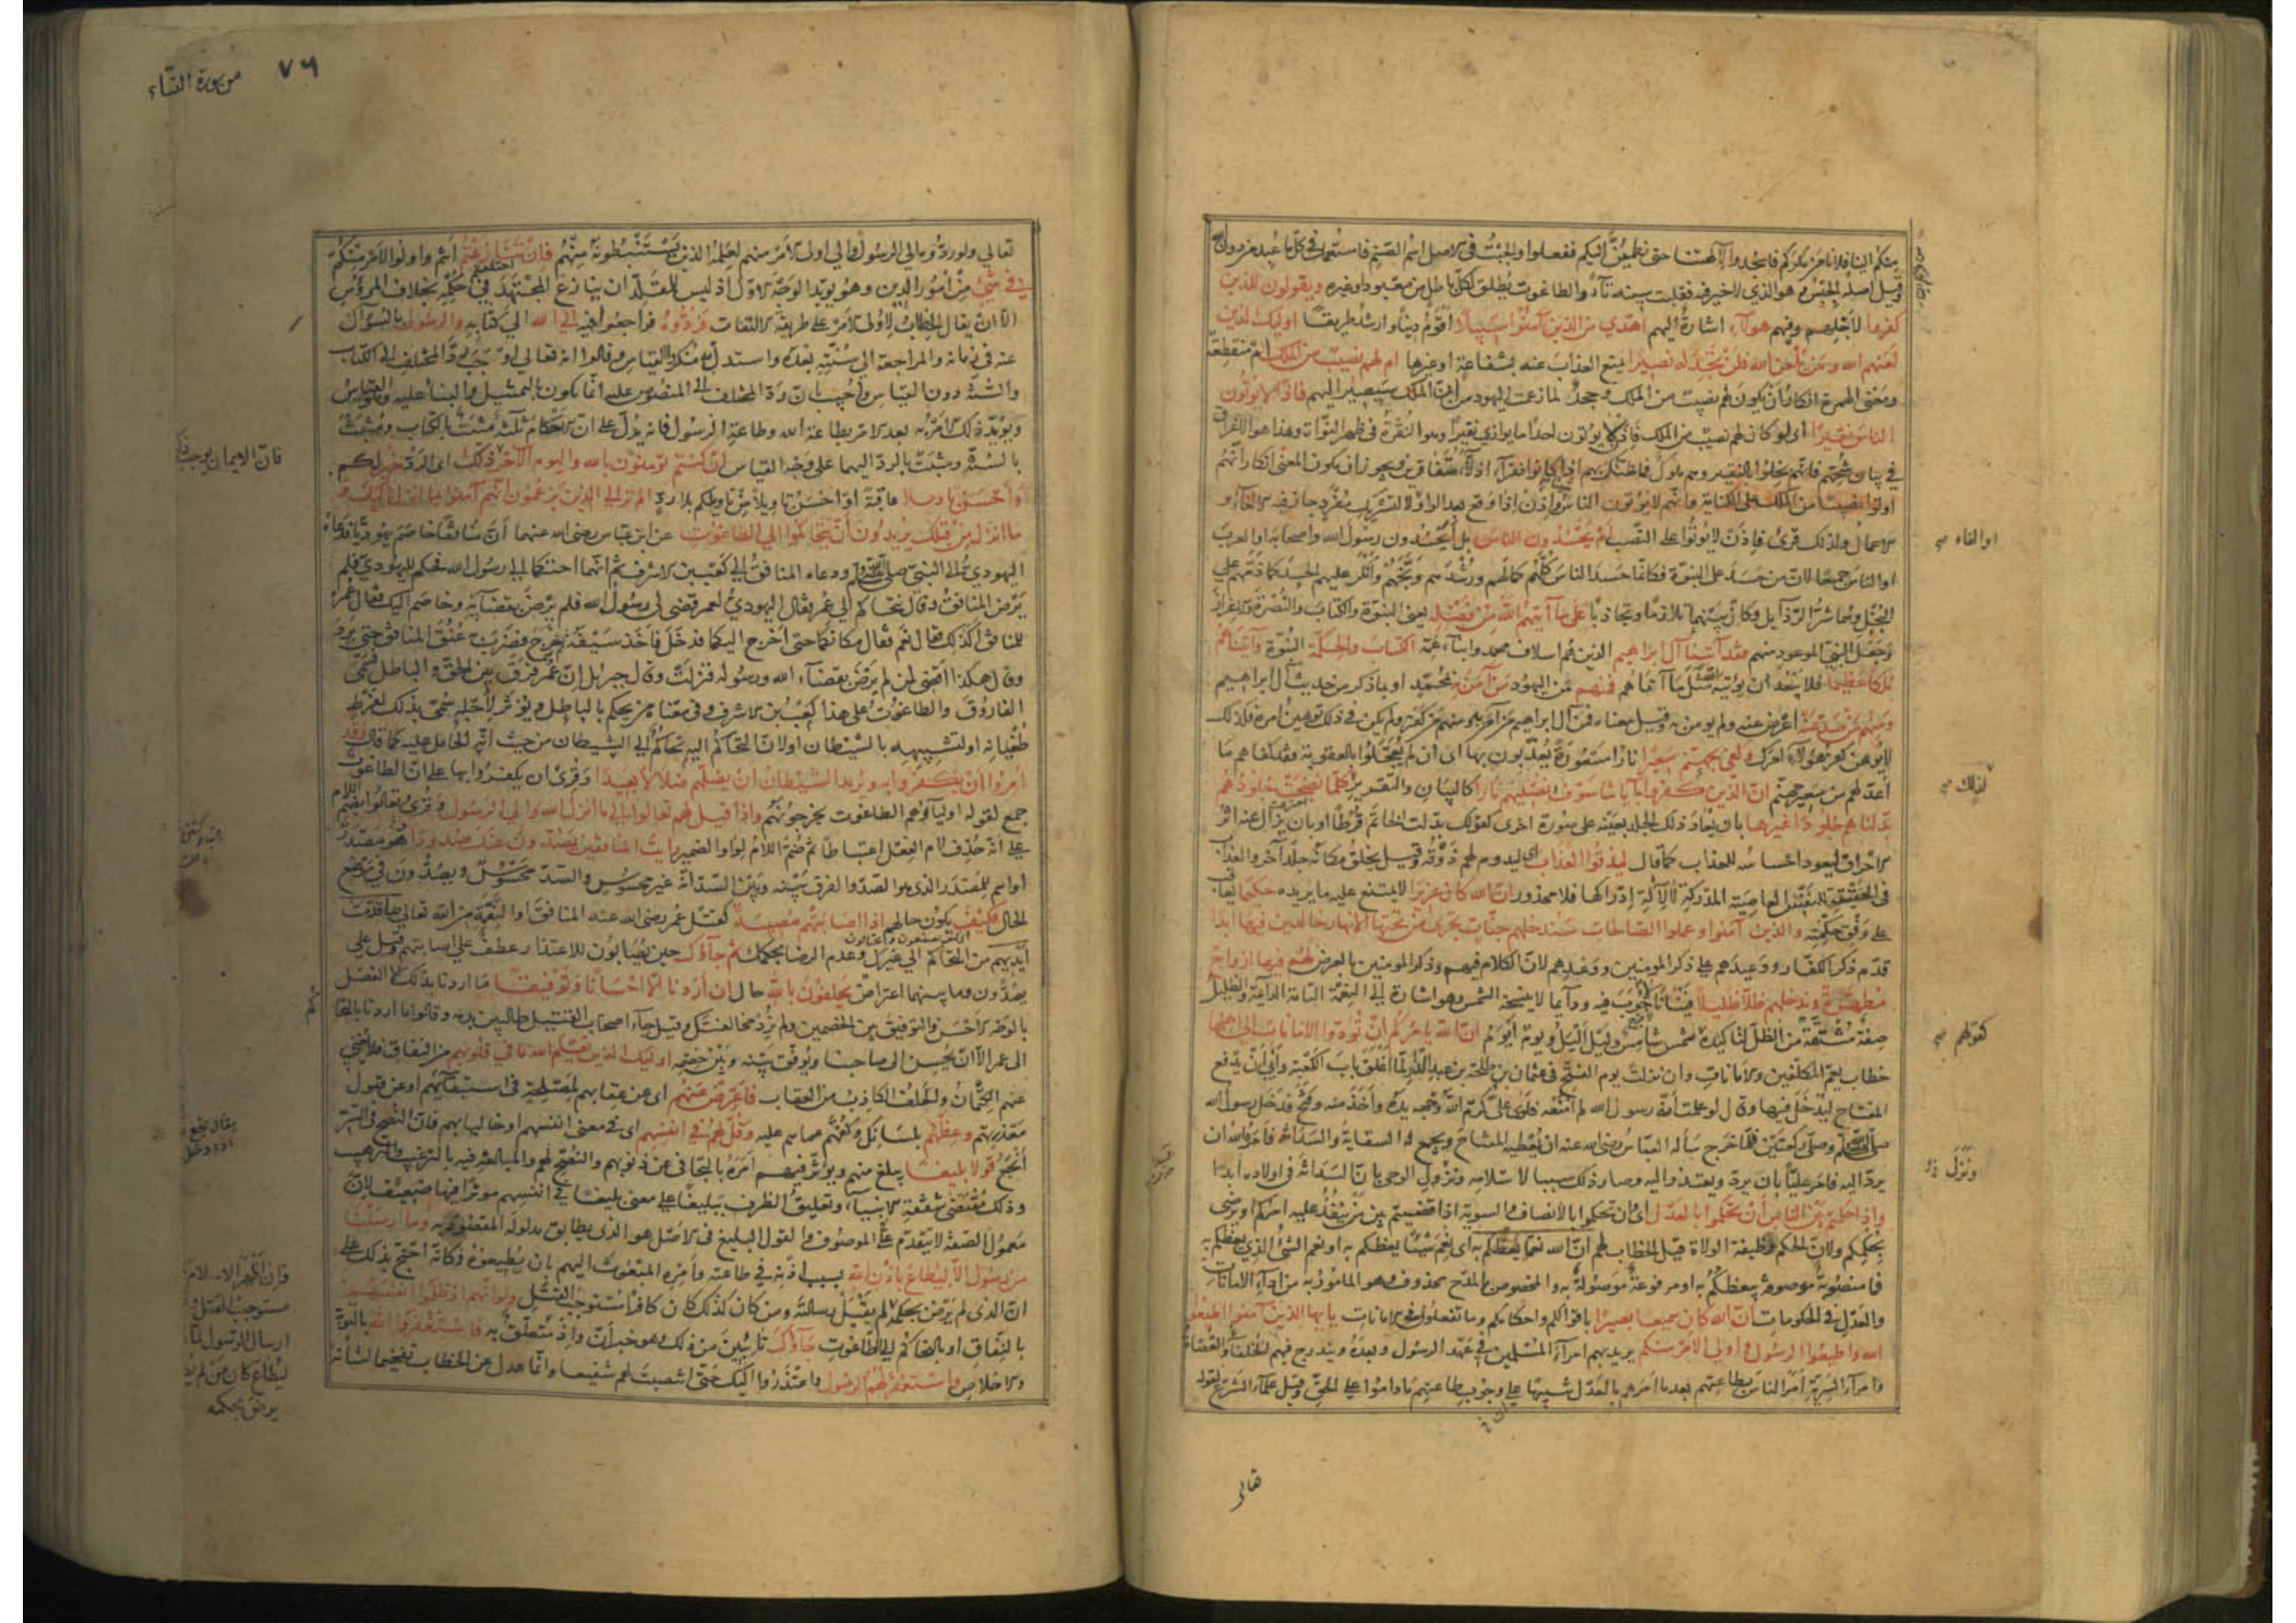 منكم الينا فلا نأمن مكركم فاسجدوا لآلهتنا حتى نطمئن اليكم ففعلوا والجبت في الاصل اسم الصنم فاستعمل في كل ما عبد من دون الله
وقيل اصله الجبس وهو الذي لا خير فيه فقلبت سينه تاء والطاغوت يطلق لكل باطل من معبود او غيره ويقولون للذين
كفروا لاجلهم وفيهم هؤلاء اشارة اليهم اهدي من الذين آمنوا سبيلا اقوم دينا وارشد طريقا اولئك الذين
لعنهم الله ومن يلعن الله فلن تجد له نصيرا يمنع العذاب عنه بشفاعة او غيرها ام لهم نصيب من الملك ام منقطعة
ومعنى الهمزة انكار أن يكون لهم نصيب من الملك وجحد لما زعمت اليهود من ان الملك سيصير اليهم فاذا لا يوتون
الناس نقيرا اى لو كان لهم نصيب من الملك فاذا لا يوتون احدا ما يوازي نقيرا وهو النقرة في ظهر النواة وهذا هو الاغراق
في بيان شحهم فانهم بخلوا بالنقير وهم ملوك فما ظنك بهم اذا كانوا فقراء اذلاء متفاقرين ويجوز ان يكون المعنى انكار انهم
اوتوا نصيبا من الملك على الكناية وانهم لا يوتون الناس واذن اذا وقع بعد الواو لا لتشريك مفرد جاز فيه الالغاء و
الاعمال ولذلك قرئ فاذن لا يوتوا على النصب أم يحسدون الناس بل أيحسدون رسول الله واصحابه او العرب
او الناس جميعا لان من حسد على النبوة فكانما حسد الناس كلهم كمالهم ورشدهم وبخهم وانكر عليهم الحسد كما ذمهم على
البخل وهما شر الرذايل وكان بينهما تلازما وتجاذبا على ما آتيهم الله من فضله يعنى النبوة والكتاب والنصرة والاعزاز
وجعل النبي الموعود منهم فقد آتينا آل ابراهيم الذين هم اسلاف محمد وابناء عمه الكتاب والحكمة النبوة وآتيناهم
ملكا عظيما فلا يبعد ان يؤتيه الله مثل ما آتاهم فمنهم من اليهود من آمن به بمحمد او بما ذكر من حديث آل ابراهيم
ومنهم من صد عنه اعرض عنه ولم يومن به وقيل معناه فمن آل ابراهيم من آمن به ومنهم من كفر ولم يكن في ذلك توهين امره فكذلك
لا يوهن كفر هؤلاء امرك وكفى بجهنم سعيرا نارا مسعورة يعذبون بها اى ان لم يعجلوا بالعقوبة فقد كفاهم ما
أعد لهم من سعير جهنم ان الذين كفروا بآياتنا سوف نصليهم نارا كالبيان والتقرير كلما نضجت جلودهم
بدلناهم جلودا غيرها بان يعاد ذلك الجلد بعينه على صورة اخرى كقولك بدلت الخاتم قرطا او بان يزال عنه اثر
الاحراق ليعود احساسه للعذاب كما قال ليذوقوا العذاب اى ليدوم لهم ذوقه وقيل يخلق مكانه جلد آخر والعذاب
في الحقيقة للنفس العاصية المدركة لا لآلة ادراكها فلا محذور ان الله كان عزيزا لا يمتنع عليه ما يريده حكيما يعاقب
على وفق حكمته والذين آمنوا وعملوا الصالحات سندخلهم جنات تجري من تحتها الانهار خالدين فيها ابدا
قدم ذكر الكفار ووعيدهم على ذكر المومنين ووعدهم لان الكلام فيهم وذكر المومنين بالعرض لهم فيها ازواج
مطهرة وندخلهم ظلا ظليلا فينانا لا جوب فيه ودائما لا تنسخه الشمس وهو اشارة الى النعمة التامة الدائمة والظليل
صفة مشتقة من الظل لتاكيده كشمس شامس وليل أليل ويوم أيوم ان الله يامركم ان تودوا الامانات الى اهلها
خطاب يعم المكلفين والامانات وان نزلت يوم الفتح في عثمان بن طلحة بن عبد الدار لما اغلق باب الكعبة وأبى أن يدفع
المفتاح ليدخل فيها وقال لو علمت أنه رسول الله لم امنعه فلوى على كرم الله وجهه يده وأخذ منه وفتح فدخل رسول الله
صلى الله عليه وسلم وصلى ركعتين فلما خرج سأله العباس رضى الله عنه ان يعطيه المفتاح ويجمع له السقاية والسدانة فنزلت فامره الله ان
يرد اليه فامر عليا بان يرد ويعتذر اليه وصار ذلك سببا لاسلامه ونزول الوحى بان السدانة في اولاده ابدا
واذا حكمتم بين الناس أن تحكموا بالعدل اى وان تحكموا بالانصاف والسوية اذا قضيتم بين من ينفذ عليه امركم او يرضى
بحكمكم ولان الحكم وظيفة الولاة قيل الخطاب لهم ان الله نعما يعظكم به اى نعم شيئا يعظكم به او نعم الشئ الذي يعظكم به
فما منصوبة موصوفة بيعظكم به او مرفوعة موصولة به والمخصوص بالمدح محذوف وهو المامور به من اداء الامانات
والعدل في الحكومات ان الله كان سميعا بصيرا باقوالكم واحكامكم وما تفعلون في الامانات يا ايها الذين آمنوا اطيعوا
الله واطيعوا الرسول واولي الامر منكم يريد بهم امراء المسلمين في عهد الرسول وبعده ويندرج فيهم الخلفاء والقضاة
وامراء السرية امر الناس بطاعتهم بعد ما امرهم بالعدل تنبيها على وجوب طاعتهم ما داموا على الحق وقيل علماء الشرع لقوله
او الفاء صح
لذلك صح
كقولهم صح
ونزل
تعالى
من سورة النساء
٧٦
تعالى ولو ردوه الى الرسول والى اولى الامر منهم لعلمه الذين يستنبطونه منهم فان تنازعتم أنتم واولوا الامر منكم
اختلفتم
في شئ من أمور الدين وهو يويد الوجه الاول اذ ليس للمقلد ان ينازع المجتهد في حكمه بخلاف المرؤس
الا ان يقال الخطاب لاولى الامر على طريقة الالتفات فردوه فراجعوا فيه الى الله الى كتابه والرسول بالسوال
عنه في زمانه والمراجعة الى سنته بعده واستدل به منكروا القياس وقالوا انه تعالى اوجب رد المختلف الى الكتاب
والسنة دون القياس واجيب بان رد المختلف الى المنصوص عليه انما يكون بالتمثيل والبناء عليه وهو القياس
ويؤيد ذلك الامر به بعد الامر بطاعة الله وطاعة الرسول فانه يدل على ان الاحكام ثلثة مثبت بالكتاب ومثبت
بالسنة ومثبت بالرد اليهما على وجه القياس ان كنتم تومنون بالله واليوم الآخر ذلك اى الرد خير لكم
وأحسن تاويلا عاقبة او احسن تاويلا من تاويلكم بلا رد الم تر الى الذين يزعمون انهم آمنوا بما انزل اليك و
ما انزل من قبلك يريدون أن يتحاكموا الى الطاغوت عن ابن عباس رضى الله عنهما أن منافقا خاصم يهوديا فدعاه
اليهودي الى النبي صلى الله عليه وسلم ودعاه المنافق الى كعب بن الاشرف ثم انهما احتكما الى رسول الله فحكم لليهودي فلم
يرض المنافق وقال نتحاكم الى عمر فقال اليهودي لعمر قضى لى رسول الله فلم يرض بقضائه وخاصم اليك فقال عمر
للمنافق اكذلك فقال نعم فقال مكانكما حتى اخرج اليكما فدخل فأخذ سيفه ثم خرج فضرب به عنق المنافق حتى برد
وقال هكذا اقضى لمن لم يرض بقضاء الله ورسوله فنزلت وقال جبريل ان عمر فرق بين الحق والباطل فسمى
الفاروق والطاغوت على هذا كعب بن الاشرف وفي معناه من يحكم بالباطل ويؤثر لاجله سمى بذلك لفرط
طغيانه او لتشبيهه بالشيطان او لان التحاكم اليه تحاكم الى الشيطان من حيث انه الحامل عليه كما قال وقد
امروا أن يكفروا به ويريد الشيطان أن يضلهم ضلالا بعيدا وقرئ ان يكفروا بها على ان الطاغوت
جمع لقوله اولياؤهم الطاغوت يخرجونهم واذا قيل لهم تعالوا الى ما انزل الله والى الرسول وقرئ تعالوا بضم اللام
على انه حذف لام الفعل اعتباطا ثم ضم اللام لواو الضمير رايت المنافقين يصدون عنك صدودا هو مصدر
او اسم للمصدر الذى هو الصد والفرق بينه وبين السد انه غير محسوس والسد محسوس ويصدون في موضع
الحال فكيف يكون حالهم اذا اصابتهم مصيبة كقتل عمر رضى الله عنه المنافق او النقمة من الله تعالى بما قدمت
أيديهم من التحاكم الى غيرك وعدم الرضا بحكمك ثم جاؤك حين يصابون للاعتذار عطف على اصابتهم وقيل على
يصدون وما بينهما اعتراض يحلفون بالله حال ان أردنا الا احسانا وتوفيقا ما اردنا بذلك الا الفصل
بالوجه الاحسن والتوفيق بين الخصمين ولم نرد مخالفتك وقيل جاء اصحاب القتيل طالبين بدمه وقالوا ما اردنا بالتحاكم
الى عمر الا ان يحسن الى صاحبنا ويوفق بينه وبين خصمه اولئك الذين يعلم الله ما في قلوبهم من النفاق فلا يغنى
عنهم الكتمان والحلف الكاذب من العقاب فاعرض عنهم اى عن عقابهم لمصلحة في استبقائهم او عن قبول
معذرتهم وعظهم بلسانك وكفهم عما هم عليه وقل لهم في انفسهم اى في معنى انفسهم او خاليا بهم فان النصح في السر
أنجع قولا بليغا يبلغ منهم ويؤثر فيهم امره بالتجافى عن ذنوبهم والنصح لهم والمبالغة فيه بالترغيب والترهيب
وذلك مقتضى شفقة الانبياء وتعليق الظرف ببليغا على معنى بليغا في انفسهم موثرا فيها ضعيف لان
معمول الصفة لا يتقدم على الموصوف والقول البليغ في الاصل هو الذى يطابق مدلوله المقصود به وما ارسلنا
من رسول الا ليطاع باذن الله بسبب اذنه في طاعته وأمره المبعوث اليهم بان يطيعوه وكانه احتج بذلك على
ان الذى لم يرض بحكمه لم يقبل رسالته ومن كان كذلك كان كافرا مستوجب القتل ولو انهم اذ ظلموا انفسهم
بالنفاق او بالتحاكم الى الطاغوت جاؤك تائبين من ذلك وهو خبر أن واذ متعلق به فاستغفروا الله بالتوبة
والاخلاص واستغفر لهم الرسول واعتذروا اليك حتى انتصبت لهم شفيعا وانما عدل عن الخطاب تفخيما لشأنه
فان الايمان يوجب
وان اظهر الاسلام
مستوجب القتل و
ارسال الرسول لما
ليطاع كان من لم
يرض بحكمه